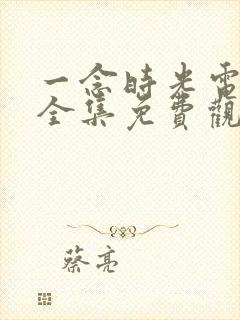 一念時光電
全集免費觀
蔡亮